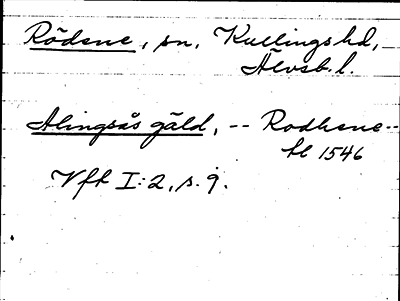 Rödene, sn, Kullings hd,
Älvsb. l.
Alingsås gäld, -- Rodhene --
kl 1546
Vft I:2, s. 9.